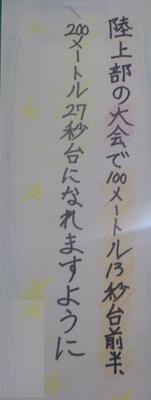 陸上部の大会で100メートル13秒台前半、
200メートル27秒台になれますように